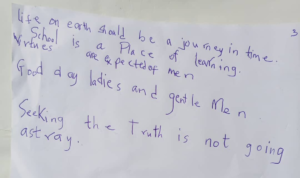 Life on earth should be a journey in time.
School is a Place of learning.
Virtues are expected of men
Good day ladies and gentle Men
Seeking the Truth is not going
astray.